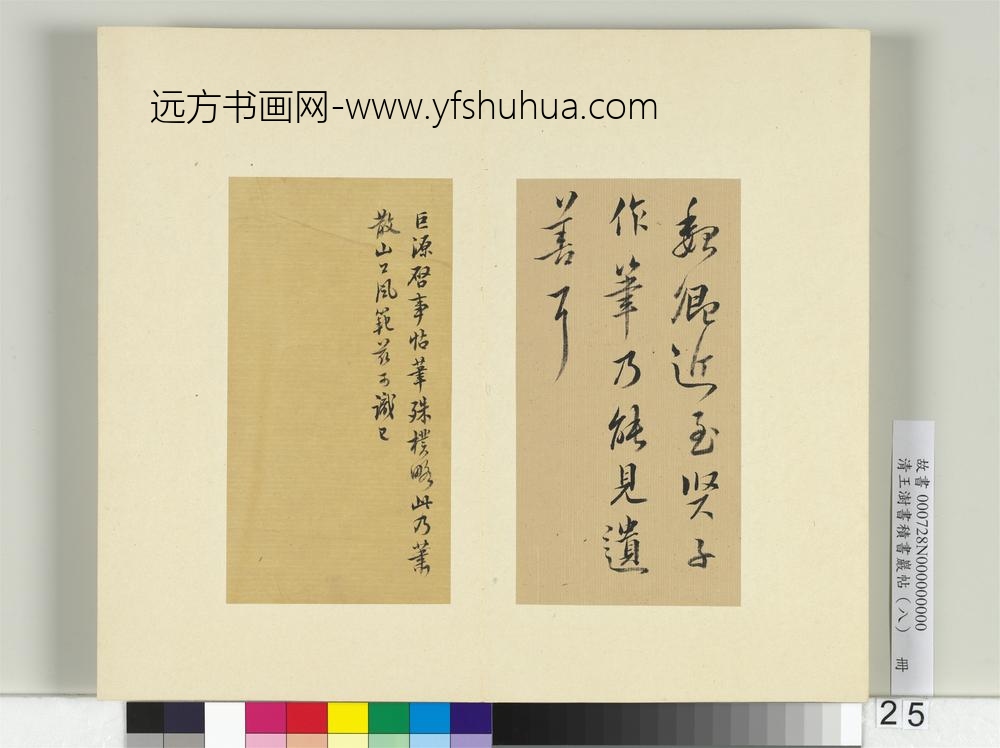 远方书画网-www.yfshuhua.com
近至賢子
作筆乃能見遺
善耳
巨源啓事帖筆殊樸略此乃蕭
散山公風範茲可識已
故書 000728N000000000
清王澍書積書巖帖（八） 冊
25